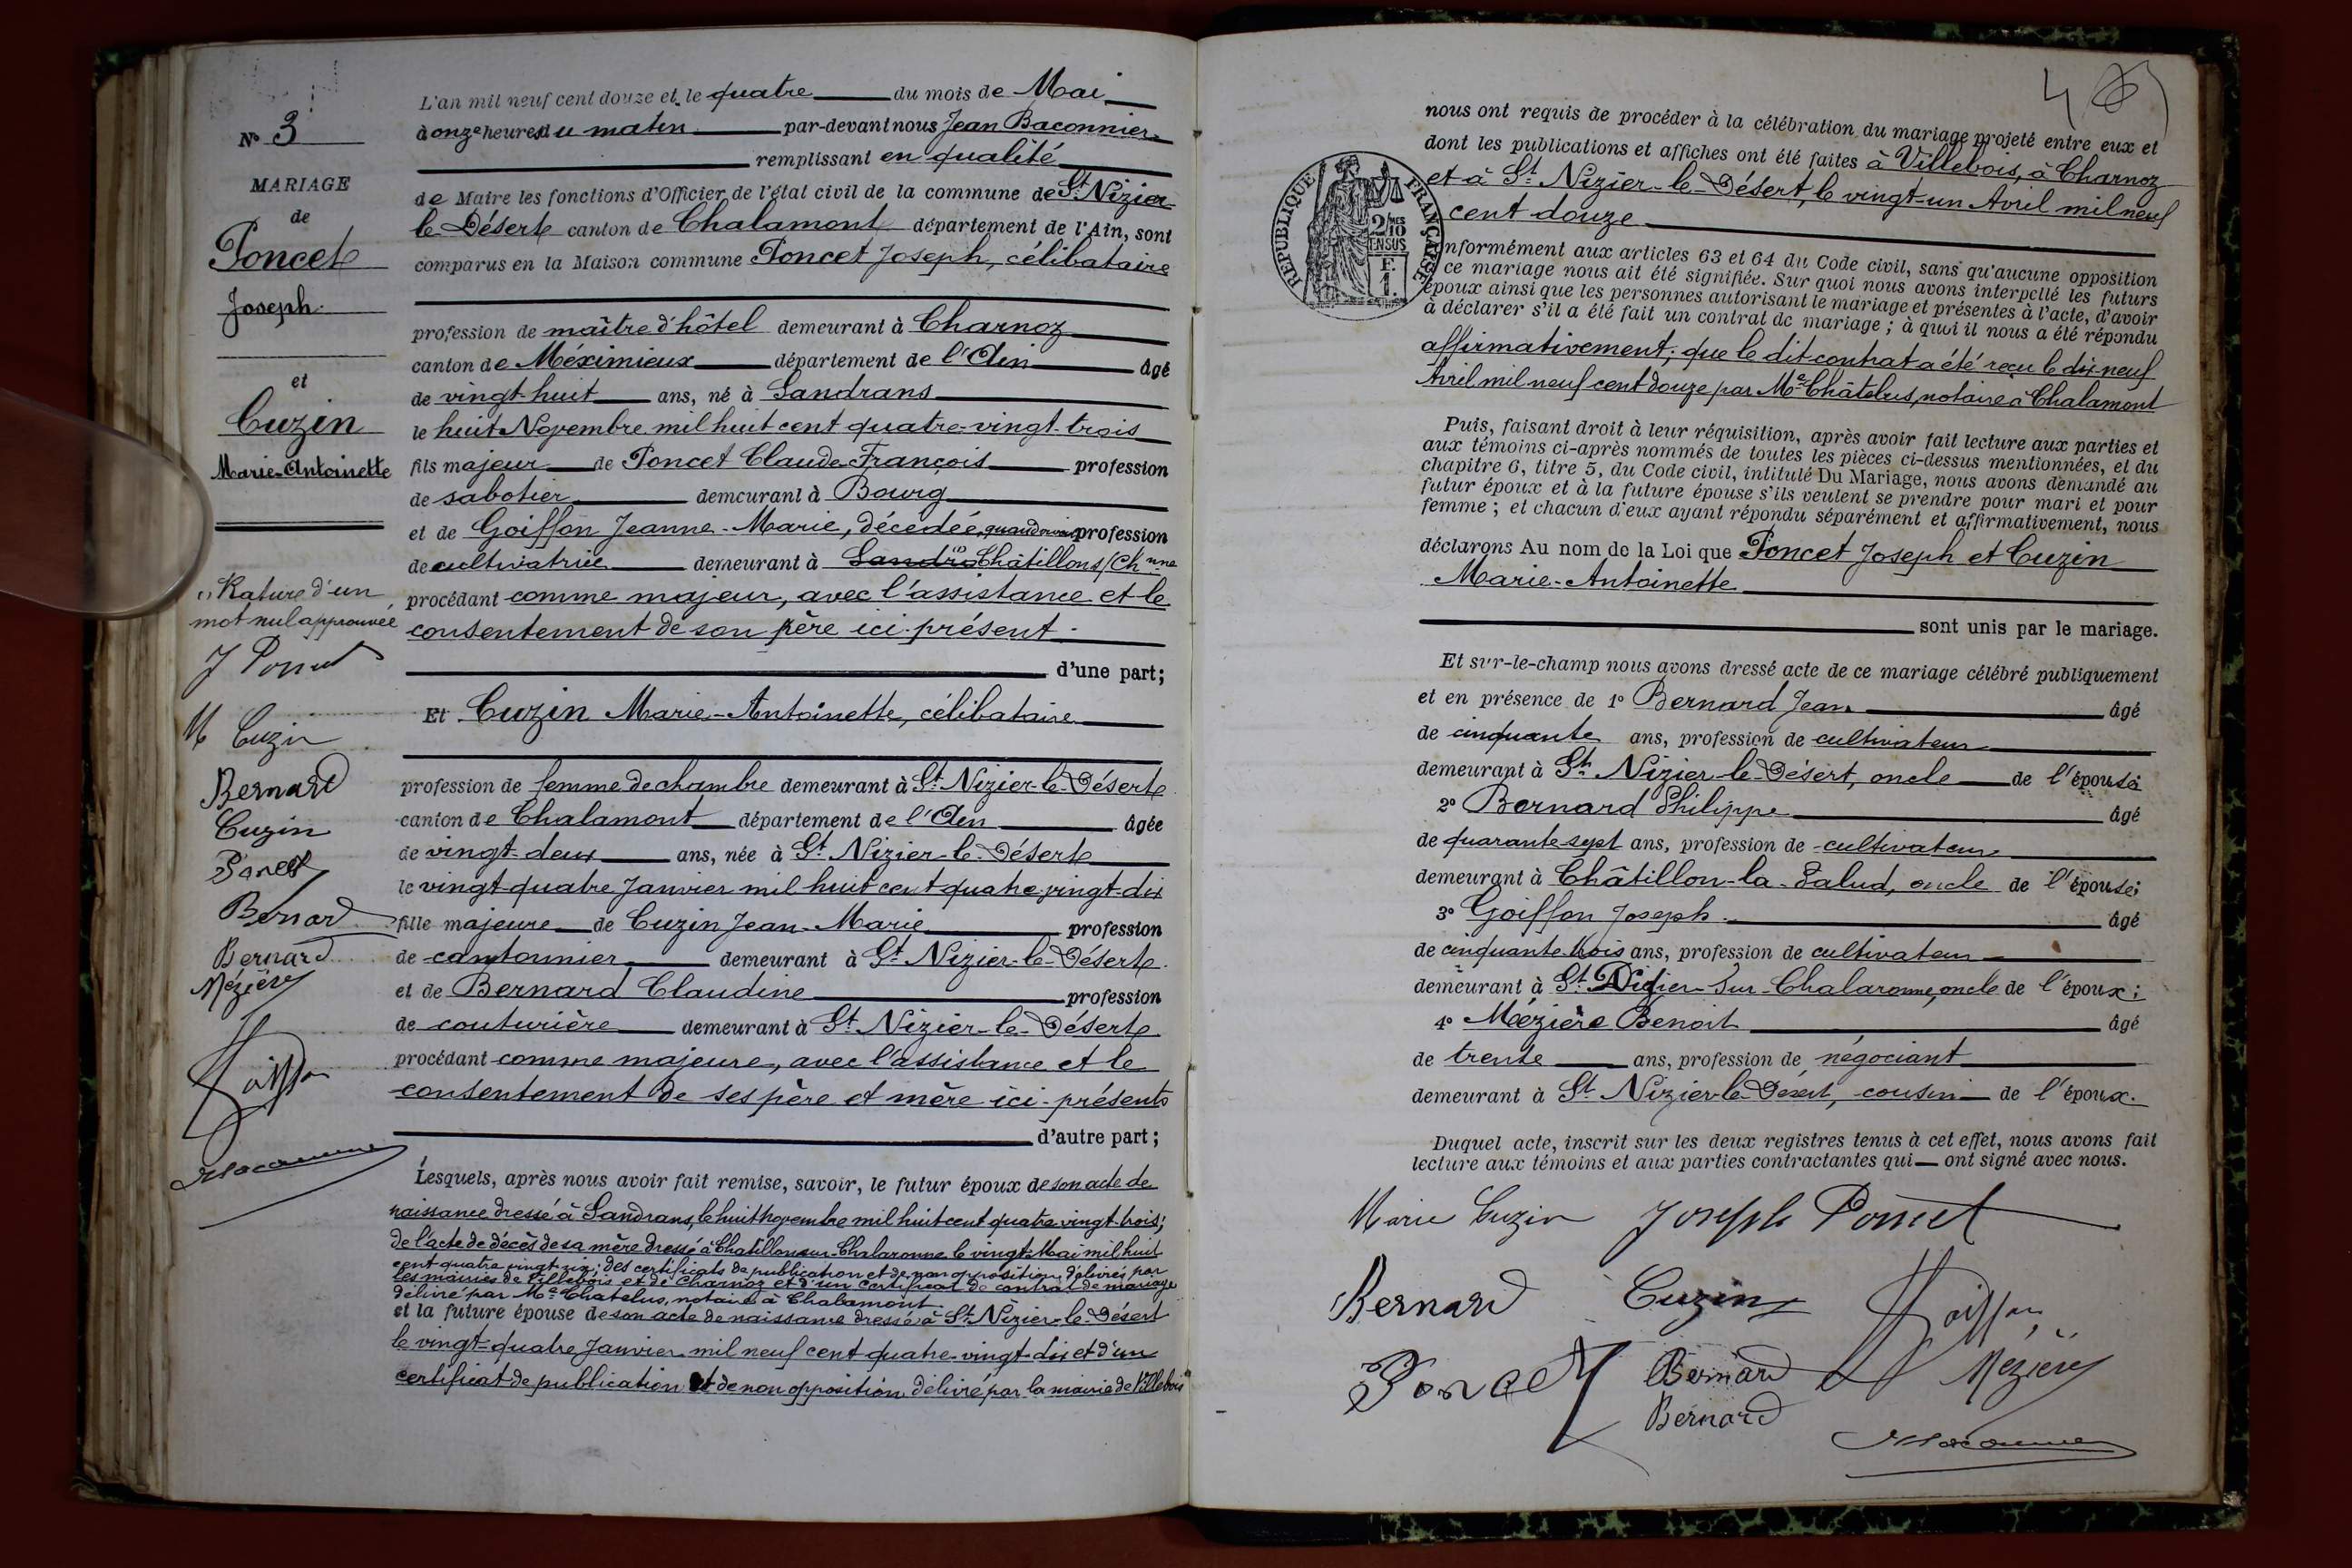 N° 3
MARIAGE
de
Poncet
Joseph
et
Cuzin
Marie-Antoinette
Rature d'un
mot nul approuvée
J Poncet
M Cuzin
Bernard
Cuzin
Poncet
Bernard
Bernard
Mézière
Goiffon
L'an mil neuf cent douze et le quatre du mois de Mai
à onze heures du matin par-devant nous Jean Baconnier
remplissant en qualité
de Maire les fonctions d'Officier de l'état civil de la commune de St Nizier
le Désert canton de Chalamont département de l'Ain, sont
comparus en la Maison commune Poncet Joseph, célibataire
profession de maître d'hôtel demeurant à Charnoz
canton de Méximieux département de l'Ain âgé
de vingt-huit ans, né à Sandrans
le huit Novembre mil huit cent quatre-vingt-trois
fils majeur de Poncet Claude François profession
de sabotier demeurant à Bourg
et de Goiffon Jeanne-Marie, décédée, quand vivait profession
de cultivatrice demeurant à Châtillon s/Chnne
procédant comme majeur, avec l'assistance et le
consentement de son père ici présent
d'une part;
Et Cuzin Marie-Antoinette, célibataire
profession de femme de chambre demeurant à St Nizier-le-Désert
canton de Chalamont département de l'Ain âgée
de vingt-deux ans, née à St Nizier-le-Désert
le vingt-quatre Janvier mil huit cent quatre-vingt-dix
fille majeure de Cuzin Jean-Marie profession
de cantonnier demeurant à St Nizier-le-Désert
et de Bernard Claudine profession
de couturière demeurant à St Nizier-le-Désert
procédant comme majeure, avec l'assistance et le
consentement de ses père et mère ici-présents
d'autre part;
Lesquels, après nous avoir fait remise, savoir, le futur époux de son acte de
naissance dressé à Sandrans, le huit novembre mil huit cent quatre vingt-trois;
de l'acte de décès de sa mère dressé à Châtillon-sur-Chalaronne le vingt Mai mil huit
cent quatre vingt-six; des certificats de publication et de non opposition délivrés par
les mairies de Villebois et de Charnoz et d'un certificat de contrat de mariage
délivré par Me Chatelus, notaire à Chalamont
et la future épouse de son acte de naissance dressé à St Nizier-le-Désert
le vingt-quatre Janvier mil neuf cent quatre-vingt-dix et d'un
certificat de publication et de non opposition délivré par la mairie de Villebois
4
nous ont requis de procéder à la célébration du mariage projeté entre eux et
dont les publications et affiches ont été faites à Villebois, à Charnoz
et à St Nizier-le-Désert, le vingt-un Avril mil neuf
cent douze
RÉPUBLIQUE FRANÇAISE
2/10 MES
EN SUS
F.
1.
nformément aux articles 63 et 64 du Code civil, sans qu'aucune opposition
ce mariage nous ait été signifiée. Sur quoi nous avons interpellé les futurs
époux ainsi que les personnes autorisant le mariage et présentes à l'acte, d'avoir
à déclarer s'il a été fait un contrat de mariage; à quoi il nous a été répondu
affirmativement; que le dit contrat a été reçu le dix-neuf
Avril mil neuf cent douze par Me Châtelus, notaire à Chalamont
Puis, faisant droit à leur réquisition, après avoir fait lecture aux parties et
aux témoins ci-après nommés de toutes les pièces ci-dessus mentionnées, et du
chapitre 6, titre 5, du Code civil, intitulé Du Mariage, nous avons demandé au
futur époux et à la future épouse s'ils veulent se prendre pour mari et pour
femme; et chacun d'eux ayant répondu séparément et affirmativement, nous
déclarons Au nom de la Loi que Poncet Joseph et Cuzin
Marie-Antoinette
sont unis par le mariage.
Et sur-le-champ nous avons dressé acte de ce mariage célébré publiquement
et en présence de 1° Bernard Jean âgé
de cinquante ans, profession de cultivateur
demeurant à St Nizier-le-Désert, oncle de l'épouse;
2° Bernard Philippe âgé
de quarante-sept ans, profession de cultivateur
demeurant à Châtillon-la-Palud, oncle de l'épouse;
3° Goiffon Joseph âgé
de cinquante-trois ans, profession de cultivateur
demeurant à St Didier-sur-Chalaronne, oncle de l'époux;
4° Mézière Benoit âgé
de trente ans, profession de négociant
demeurant à St Nizier-le-Désert, cousin de l'époux.
Duquel acte, inscrit sur les deux registres tenus à cet effet, nous avons fait
lecture aux témoins et aux parties contractantes qui ont signé avec nous.
Marie Cuzin Joseph Poncet
Bernard Cuzin Goiffon
Poncet Bernard Mézière
Bernard